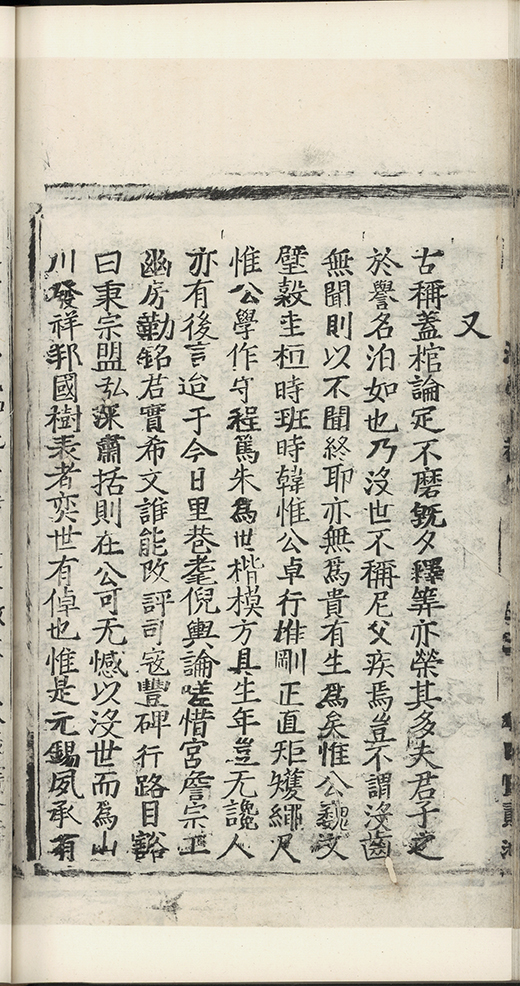 又
古稱蓋棺論定不磨旣夕釋筭亦榮其多夫君子之
於譽名泊如也乃沒世不稱尼父疾焉豈不謂沒齒
無聞則以不聞終耶亦無爲貴有生爲矣惟公魏汶
璧穀圭桓時班時韓惟公卓行惟剛正直矩矱繩尺
惟公學作守程篤朱爲世楷模方其生年豈无讒人
亦有後言迨于今日里巷耄倪輿論嗟惜宮詹宗工
幽房勒銘若實希文誰能改評司寇豐碑行路目谿
曰秉宗盟弘深肅括則在公可无憾以沒世而爲山
川發祥邦國樹表者奕世有倬也惟是元錫夙承有